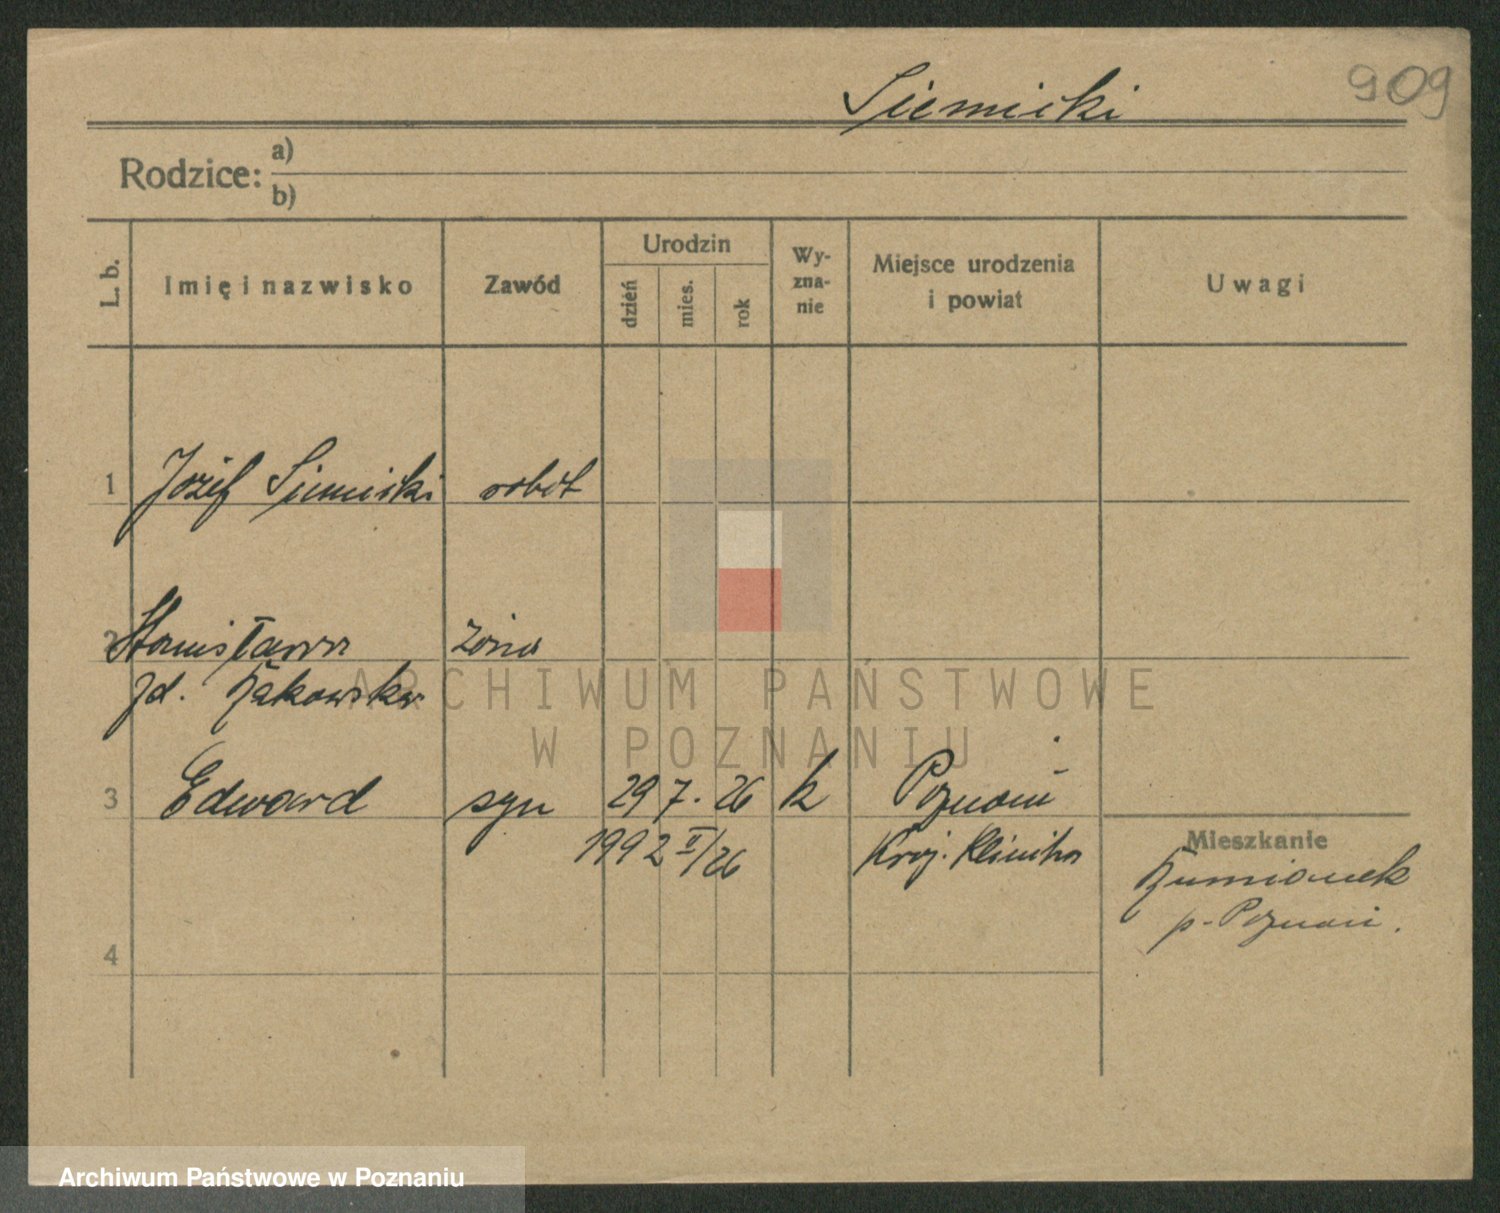 909
Siemicki
Rodzice: a)
b)
L. b.
Imię i nazwisko
Zawód
Urodzin
dzień
mies.
rok
Wy-
zna-
nie
Miejsce urodzenia
i powiat
Uwagi
1 Józef Siemicki robot
2 Stanisława żona
zd. Żakowska
3 Edward syn 29 7. 26 k Poznań
1992 II/26 Kraj. Klinika
Mieszkanie
p. Poznań.
4
ARCHIWUM PAŃSTWOWE
W POZNANIU
Archiwum Państwowe w Poznaniu